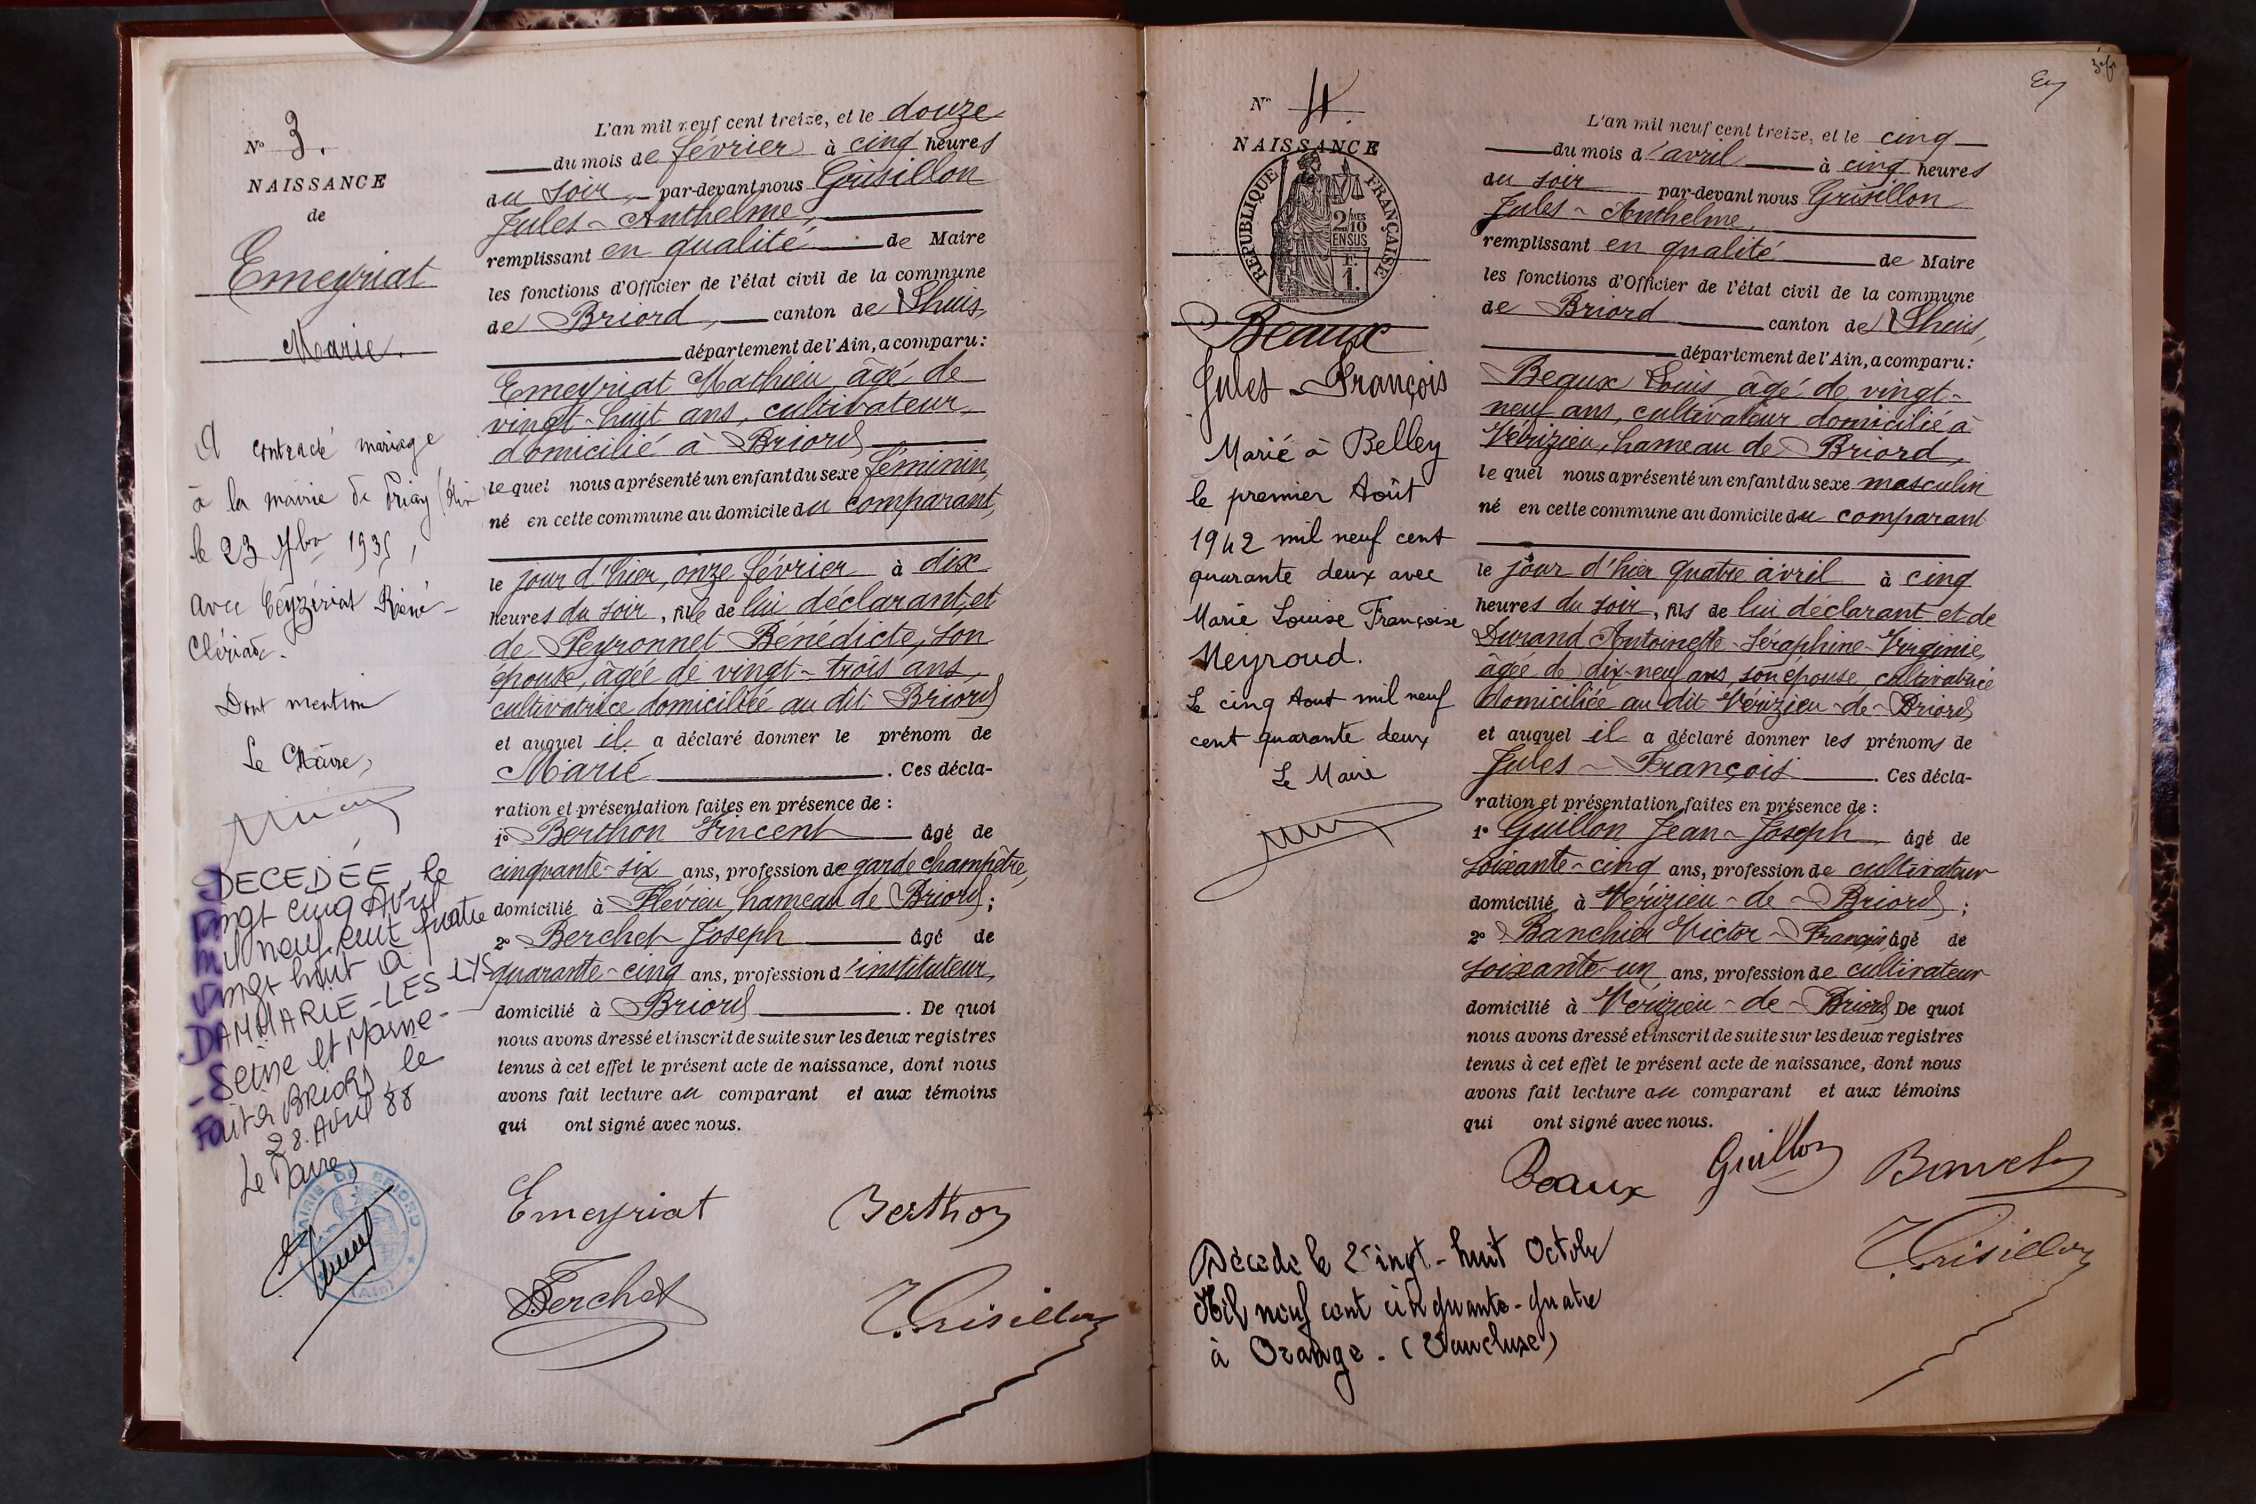 N° 3.
NAISSANCE
de
Emeyriat
Marie.
A contracté mariage
à la mairie de Priay (Ain
le 23 1935,
avec Ceyzériat René
Clériade.
Dont mention
Le Maire,
DECEDÉE le
vingt cinq Avril
mil neuf cent quatre
vingt huit à
DAMMARIE-LES-LYS
-Seine et Marne-
Fait à BRIORD le
28. Avril 88
Le Maire,
MAIRIE DE BRIORD
(Ain)
L'an mil neuf cent treize, et le douze
du mois de février à cinq heures
du soir, par-devant nous Grisillon
Jules-Anthelme,
remplissant en qualité de Maire
les fonctions d'Officier de l'état civil de la commune
de Briord, canton de Lhuis,
département de l'Ain, a comparu:
Emeyriat Mathieu âgé de
vingt-huit ans, cultivateur
domicilié à Briord
lequel nous a présenté un enfant du sexe féminin,
né en cette commune au domicile du comparant,
le jour d'hier, onze février à dix
heures du soir, fille de lui déclarant et
de Peyronnet Bénédicte, son
épouse, âgée de vingt-trois ans,
cultivatrice domiciliée au dit Briord
et auquel il a déclaré donner le prénom de
Marie. Ces décla-
ration et présentation faites en présence de :
1° Berthon Vincent âgé de
cinquante-six ans, profession de garde champêtre,
domicilié à Flévieu hameau de Briord;
2° Berchet Joseph âgé de
quarante-cinq ans, profession d'instituteur,
domicilié à Briord. De quoi
nous avons dressé et inscrit de suite sur les deux registres
tenus à cet effet le présent acte de naissance, dont nous
avons fait lecture au comparant et aux témoins
qui ont signé avec nous.
Emeyriat Berthon
Berchet J. Grisillon
N° 4.
NAISSANCE
de
RÉPUBLIQUE FRANÇAISE
2/10
EN SUS
1.
Beaux
Jules-François
Marié à Belley
le premier Août
1942 mil neuf cent
quarante deux avec
Marie Louise Françoise
Neyroud.
Le cinq Aout mil neuf
cent quarante deux
Le Maire
L'an mil neuf cent treize, et le cinq
du mois d'avril à cinq heures
du soir par-devant nous Grisillon
Jules-Anthelme,
remplissant en qualité de Maire
les fonctions d'Officier de l'état civil de la commune
de Briord canton de Lhuis,
département de l'Ain, a comparu:
Beaux Louis âgé de vingt-
neuf ans, cultivateur domicilié à
Vérizieu, hameau de Briord,
lequel nous a présenté un enfant du sexe masculin
né en cette commune au domicile du comparant
le jour d'hier quatre avril à cinq
heures du soir, fils de lui déclarant et de
Durand Antoinette-Séraphine-Virginie,
âgée de dix-neuf ans, son épouse cultivatrice
domiciliée au dit Vérizieu-de-Briord
et auquel il a déclaré donner les prénoms de
Jules-François. Ces décla-
ration et présentation faites en présence de :
1° Guillon Jean-Joseph âgé de
soixante-cinq ans, profession de cultivateur
domicilié à Vérizieu-de-Briord;
2° Banchet Victor-François âgé de
soixante-un ans, profession de cultivateur
domicilié à Vérizieu-de-Briord De quoi
nous avons dressé et inscrit de suite sur les deux registres
tenus à cet effet le présent acte de naissance, dont nous
avons fait lecture au comparant et aux témoins
qui ont signé avec nous.
Beaux Guillon
J. Grisillon
Décédé le Vingt-huit Octobre
Mil neuf cent cinquante-quatre
à Orange. (Vaucluse)